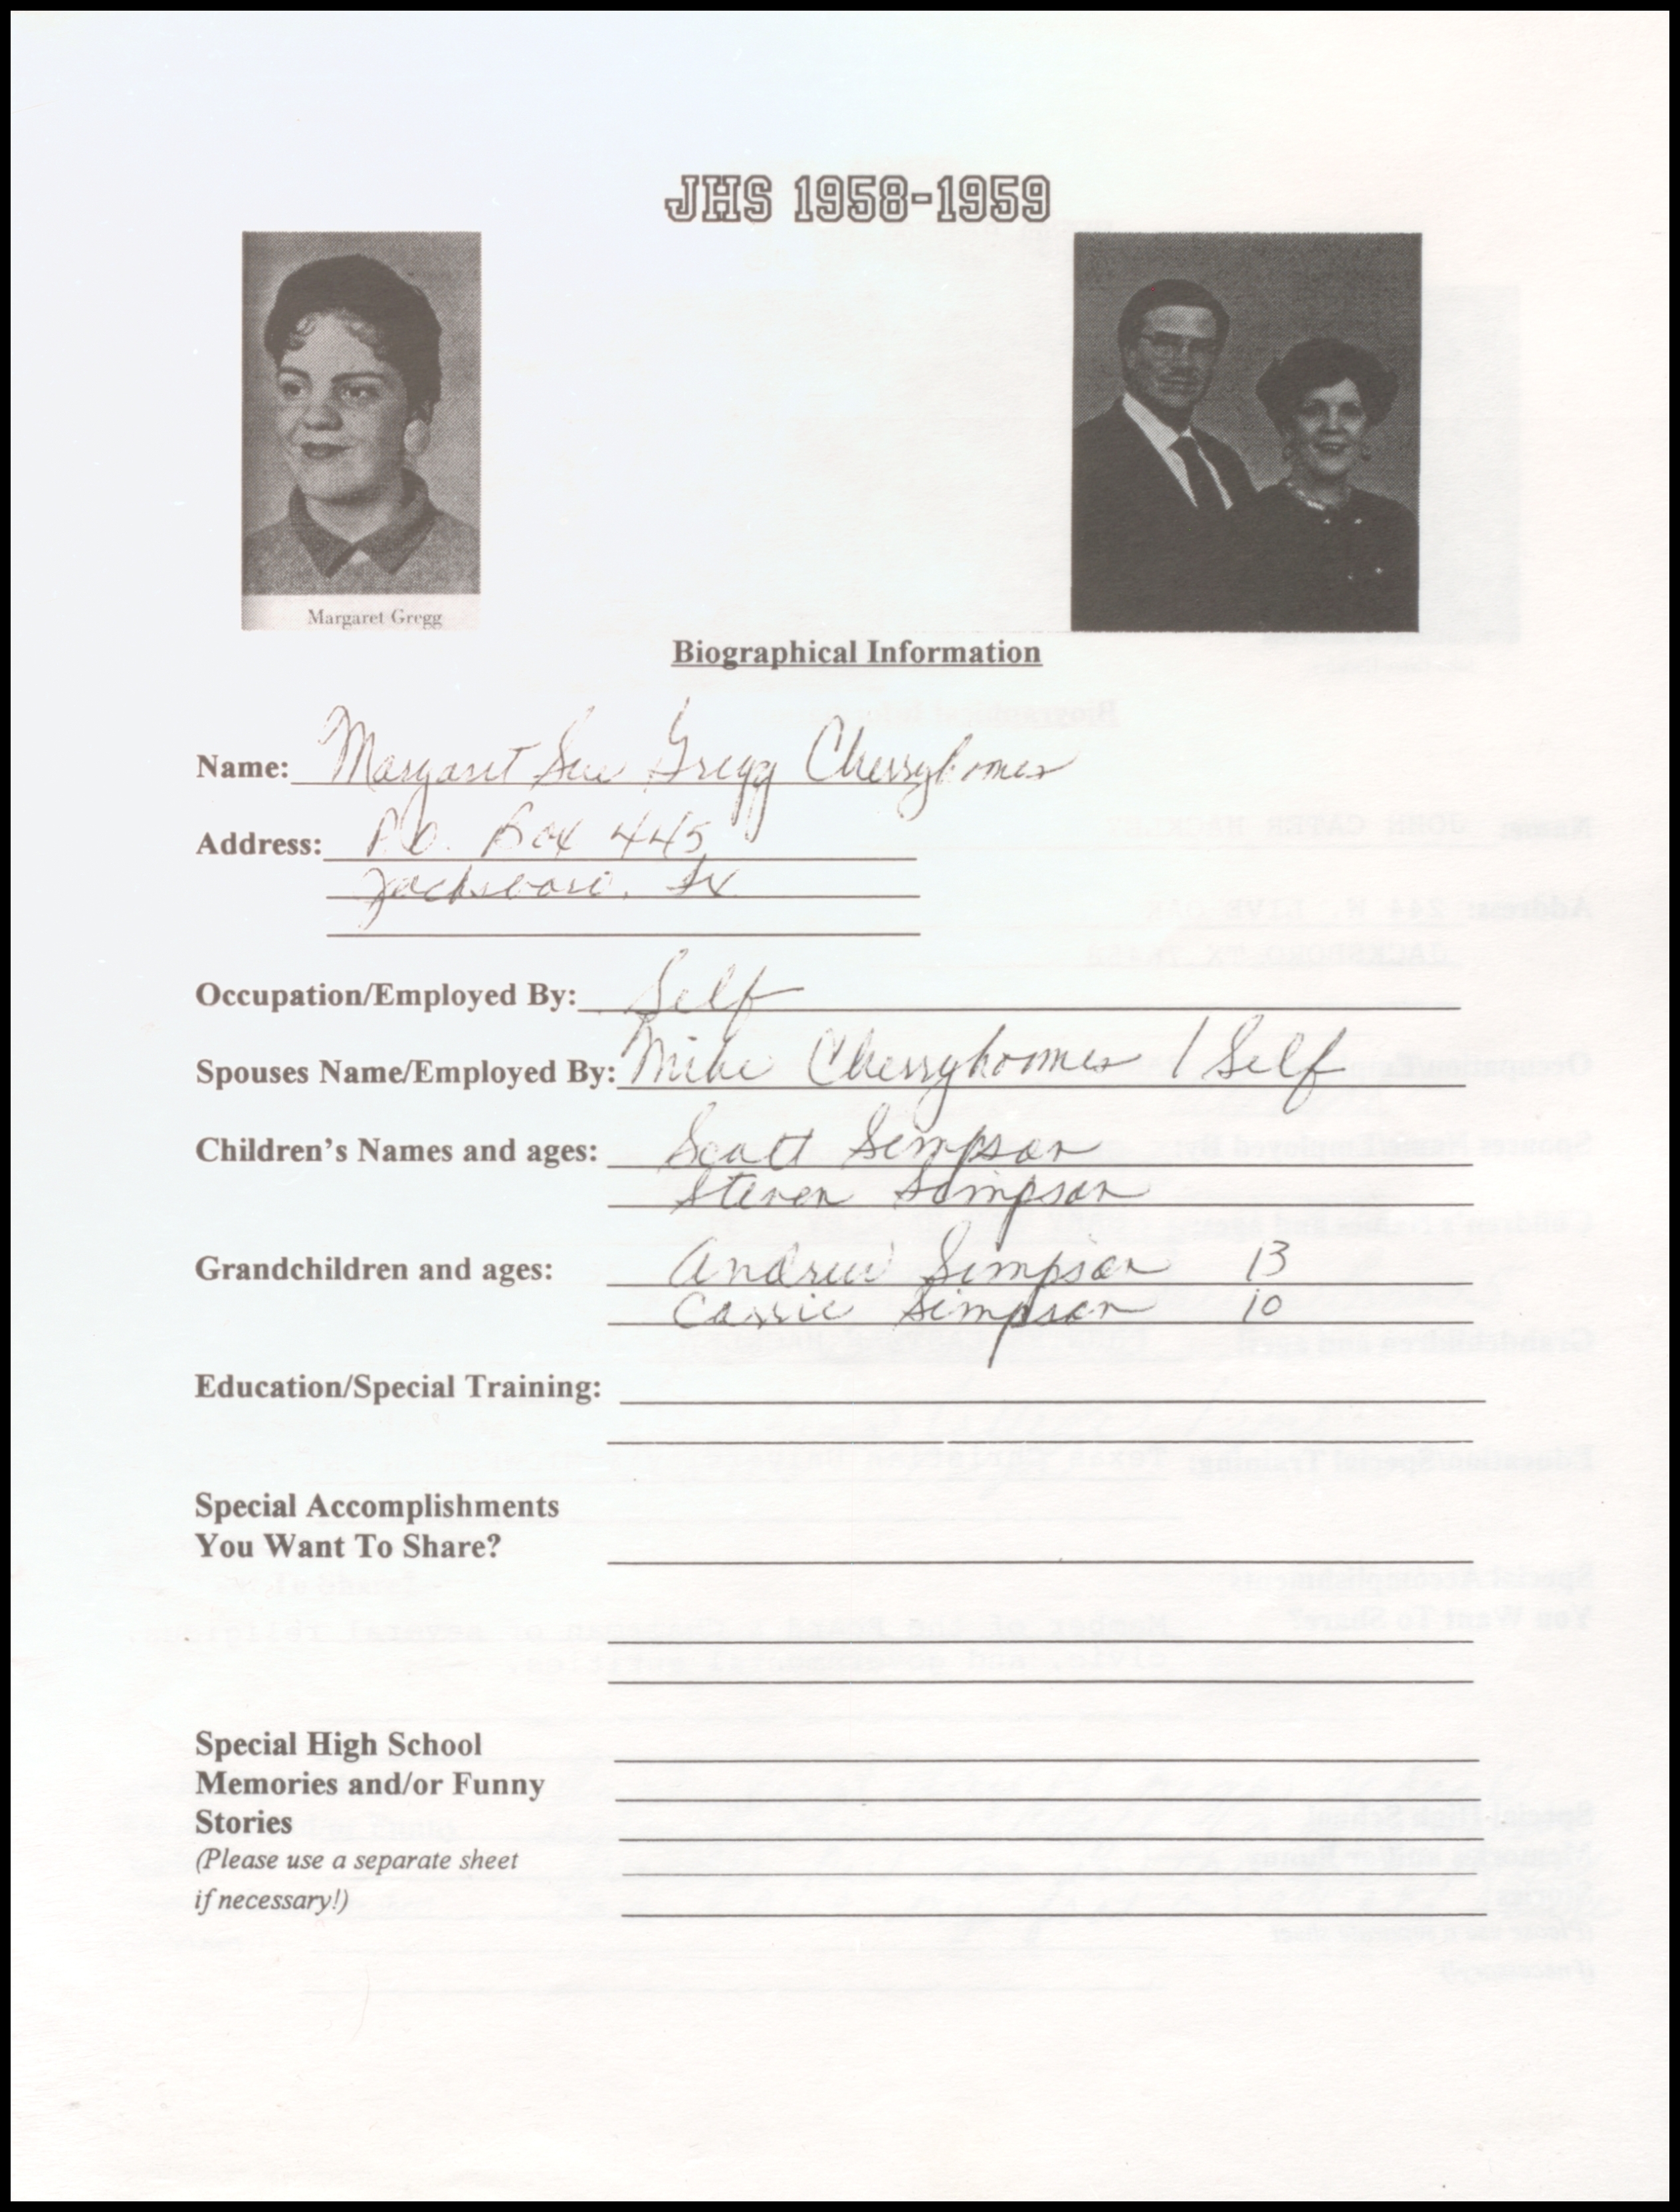 JHS 1958-1959
Margaret Gregg
Biographical Information
Name: Margaret Sue Gregg Cherryhomes
Address: P.O. Box 445
Jacksboro, Tx
Occupation/Employed By: Self
Spouses Name/Employed By: Mike Cherryhomes / Self
Children's Names and ages: Scott Simpson
Steven Simpson
Grandchildren and ages: Andrew Simpson 13
Cassie Simpson 10
Education/Special Training:
Special Accomplishments
You Want To Share?
Special High School
Memories and/or Funny
Stories
(Please use a separate sheet
if necessary!)